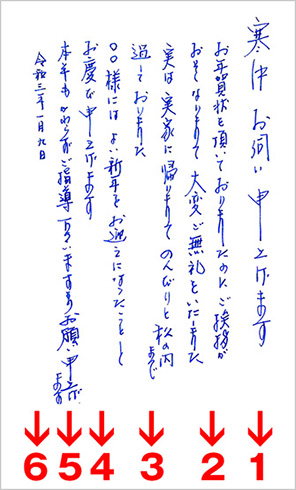 寒中 お伺い 申上げます
お年賀状を頂いておりましたのに ご挨拶が
おそくなりまして 大変ご無礼をいたしました
実は 実家に帰りまして のんびりと 松の内まで
過しておりました
〇〇様には よい新年を お迎えになったことと
お慶び申し上げます
本年もかわらずご指導下さいますようお願い申上げます
令和三年一月九日
6 5 4 3 2 1